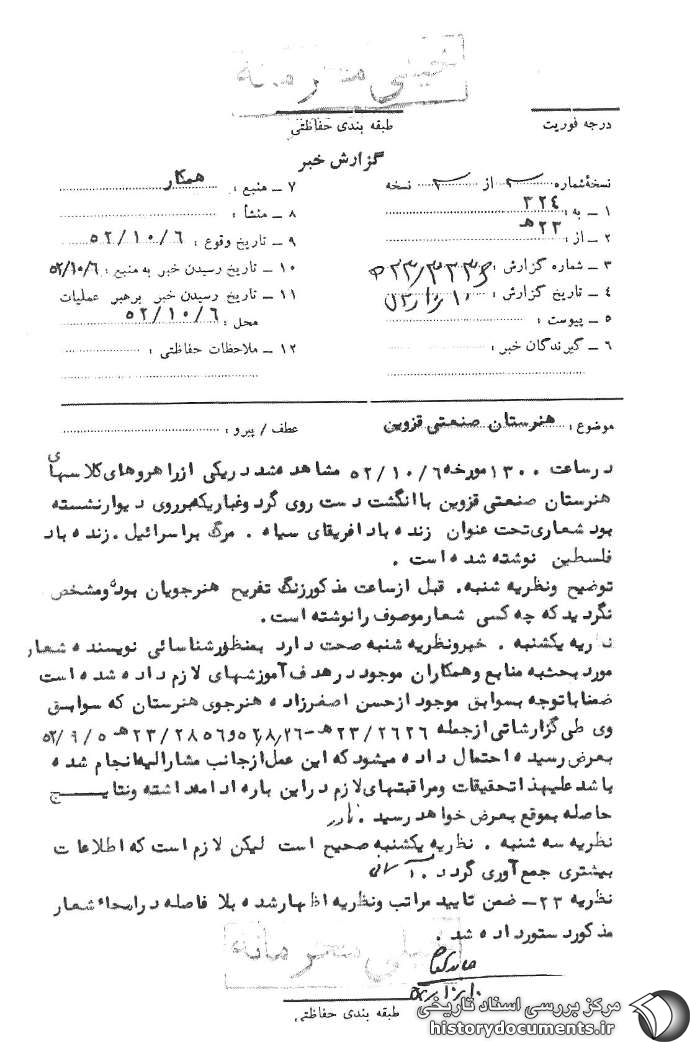 درجه فوریت
طبقه بندی حفاظتی
گزارش خبر
نسخهٔ شماره ۲ از ۲ نسخه
۱ ـ به : ۳۲۴
۲ ـ از : ۲۳ هـ
۳ ـ شماره گزارش :
۴ ـ تاریخ گزارش :
۵ ـ پیوست :
۶ ـ گیرندگان خبر :
۷ ـ منبع : همکار
۸ ـ منشأ :
۹ ـ تاریخ وقوع : ۵۲/۱۰/۶
۱۰ ـ تاریخ رسیدن خبر به منبع : ۵۲/۱۰/۶
۱۱ ـ تاریخ رسیدن خبر برهبر عملیات
محل : ۵۲/۱۰/۶
۱۲ ـ ملاحظات حفاظتی :
موضوع : هنرستان صنعتی قزوین
عطف / پیرو :
درساعت ۱۳۰۰ مورخه ۵۲/۱۰/۶ مشاهده شد دریکی ازراهروهای کلاسهای
هنرستان صنعتی قزوین باانگشت دست روی گردوغباریکه برروی دیوارنشسته
بود شعاری تحت عنوان زنده باد افریقای سیاه . مرگ براسرائیل . زنده باد
فلسطین نوشته شده است .
توضیح ونظریه شنبه. قبل ازساعت مذکورزنگ تفریح هنرجویان بوده ومشخص
نگردید که چه کسی شعارموصوف رانوشته است .
نظریه یکشنبه . خبرونظریه شنبه صحت دارد بمنظورشناسائی نویسنده شعار
مورد بحث به منابع وهمکاران موجود درهدف آموزشهای لازم داده شده است
ضمناباتوجه بسوابق موجود ازحسن اصغرزاده هنرجوی هنرستان که سوابق
وی طی گزارشاتی ازجمله ۲۳/۲۶۲۶ هـ - ۵۲/۸/۲۶ و ۲۳/۲۸۵۶ هـ ۵۲/۹/۵
بعرض رسیده احتمال داده میشود که این عمل ازجانب مشارالیه انجام شده
باشد علیهذا تحقیقات ومراقبتهای لازم دراین باره ادامه داشته ونتایج
حاصله بموقع بعرض خواهد رسید . نادر
نظریه سه شنبه . نظریه یکشنبه صحیح است لیکن لازم است که اطلاعات
بیشتری جمع آوری گردد .
نظریه ۲۳ـ ضمن تایید مراتب ونظریه اظهارشده بلا فاصله درامحاء شعار
مذکورد ستورداده شد .
طبقه بندی حفاظتی
مرکز بررسی اسناد تاریخی
historydocuments.ir